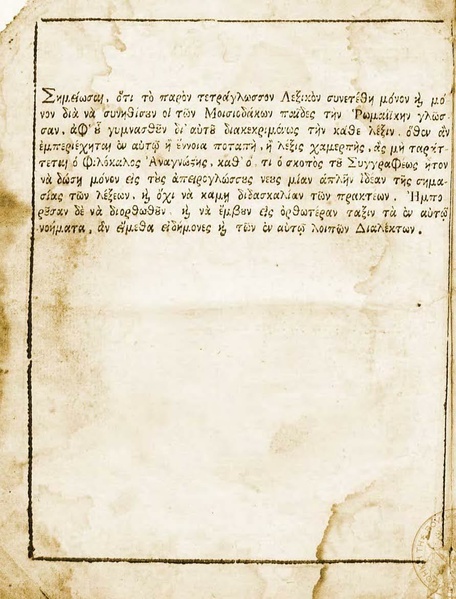 Σημείωσαι, ὅτι τὸ παρὸν τετράγλωσσον Λεξικὸν συνετέθη μόνον ϗ μό-
νον διὰ νὰ συνηθίσουν οἱ τῶν Μοισιοδάκων παῖδες τὴν Ῥωμαίϊκην γλῶσ-
σαν, ἀφ' οὗ γυμνασθοῦν δι' αὐτοῦ διακεκριμένως τὴν κάθε λέξιν. ὅθεν ἂν
ἐμπεριέχηται ἐν αὐτῷ ἢ ἔννοια ποταπὴ, ἢ λέξις χαμερπὴς, ἂς μὴ ταράτ-
τεται ὁ φιλόκαλος Ἀναγνώστης, καθ' ὅ, τι ὁ σκοπὸς τοῦ Συγγραφέως ἦτον
νὰ δώσῃ μόνον εἰς τοὺς ἀπειρογλώσσους νέους μίαν ἁπλῆν ἰδέαν τῆς σημα-
σίας τῶν λέξεων, ϗ ὄχι νὰ κάμῃ διδασκαλίαν τῶν πρακτέων. Ἠμπο-
ροῦσαν δὲ νὰ διορθωθοῦν, ϗ νὰ ἔμβουν εἰς ὀρθωτέραν τάξιν τὰ ἐν αὐτῷ
νοήματα, ἂν εἴμεθα εἰδήμονες ϗ τῶν ἐν αὐτῷ λοιπῶν Διαλέκτων.